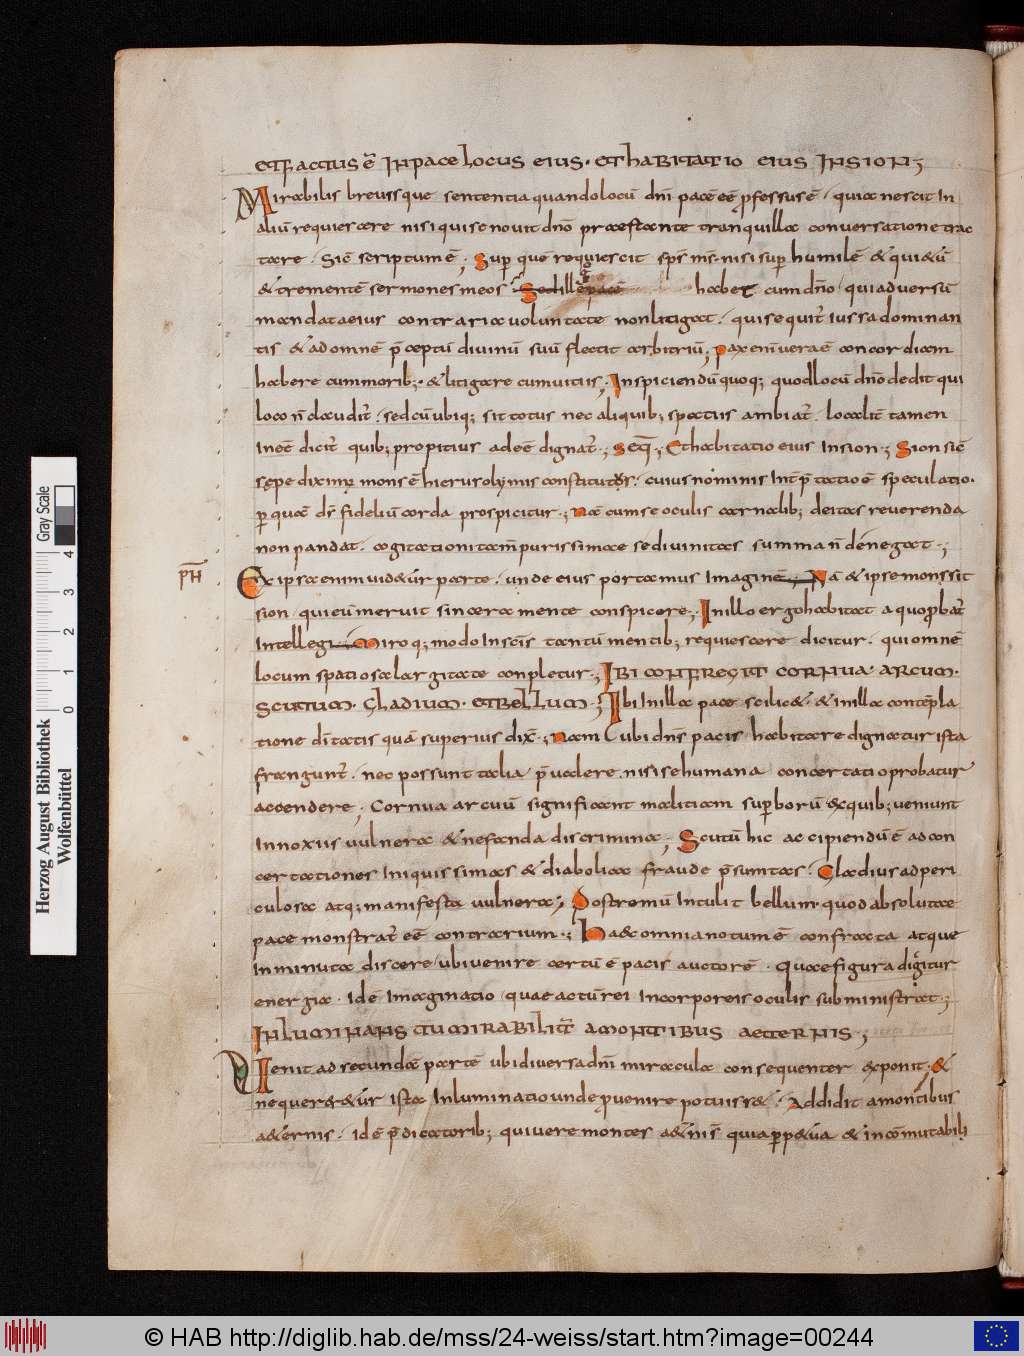 et factus ē in pace locus eius. et habitatio eius in sion;
Mirabilis breuisque sententia quando locū dn̄i pacē eē p̄fessus ē. quia nescit in
aliū requiescere nisi qui se nouit dn̄o praestante tranquilla conuersatione trac
tare. Sic̄ scriptum ē; Sup̄ quē requiescit sp̄s m̄s. nisi sup̄ humilē & qui&ū
& trementē sermones meos Sed ille pacē habet cum dn̄o, qui aduersū
mandata eius contraria uoluntate non litigat. qui sequit̄ iussa dominan
tis & ad omnē p̄ceptū diuinū suū flectit arbitriū; Pax enī uera ē concordiam
habere cum morib; & litigare cum uitiis; Inspiciendū quoq; quod locū dn̄o dedit qui
loco n̄ clauditur̄. sed cū ubiq; sit totus nec aliquib; spatiis ambiat̄. localit̄ tamen
in eo dicit̄ quib; propitius adeē dignat̄; Seq̄; Et habitatio eius in sion; Sion sic̄
sępe diximꝰ mons ē hierusolymis constitutus. cuius nominis intp̄tatio ē speculatio.
p̄ quā dī fideliū corda prospicitur; Nā cum se oculis carnalib; deitas reuerenda
non pandat. cogitationi tam̄ purissimae se diuinitas summa n̄ denegat;
PH
Ex ipsa enim uid&ur parte. unde eius portamus imaginē; Nā & ipse mons sit
sion. qui eū meruit sincera mente conspicere; In illo ergo habitat a quo p̄bat̄
intellegi; Miro q; modo in sc̄is tantū mentib; requiescere dicitur. qui omnē
locum spatiosa largitate conpletur; IBI CONFREGIT CORNUA. ARCUM.
SCUTUM. GLADIUM. ET BELLUM; Ibi in illa pace scilic&. & in illa contēpla
tione dī tactis quā superius dix̄; Nam ubi dn̄s pacis habitare dignatur ista
franguntur̄. nec possunt talia p̄ualere. nisi se humana concertatio probatur
accendere; Cornua arcuū significant malitiam superborū exquib; ueniunt
innoxiis uulnera & nefanda discrimina; Scutū hic accipiendū ē ad con
certationes iniquissimas & diabolica fraude p̄sumtas. Gladius ad peri
culosa atq; manifesta uulnera; Postremū intulit bellum. quod absolutae
pace monstrat̄ eē contrarium; Haec omnia notum ē confracta atque
in minuta discere, ubi uenire certū ē pacis auctorē. Quae figura dicitur
energia. idē imaginatio, quae actū rei incorporeis oculis subministrat;
INLUMINANS TU MIRABILIT̄ A MONTIBUS AETERNIS;
Uenit ad secundā partē ubi diuersa dn̄i miracula consequenter exponit; &
ne querer&ur ista inluminatio unde p̄uenire potuiss&. Addidit a montibus
a&ernis. idē p̄dicatorib; qui uere montes a&nī s̄ quia p̄p&ua & incōmutabili
Herzog August Bibliothek
Wolfenbüttel
Gray Scale
0 1 2 3 4
© HAB http://diglib.hab.de/mss/24-weiss/start.htm?image=00244